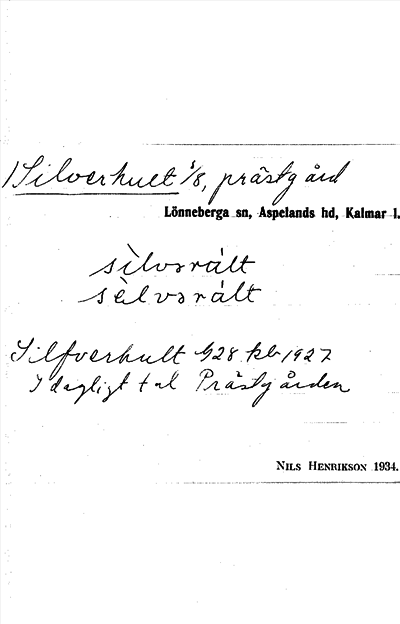 Silverhult 1/8, prästgård
Lönneberga sn, Aspelands hd, Kalmar l.
sìlvərált
sèlvərált
Silfverhult 1/28 kb 1927
I dagligt tal Prästgården
NILS HENRIKSON 1934.